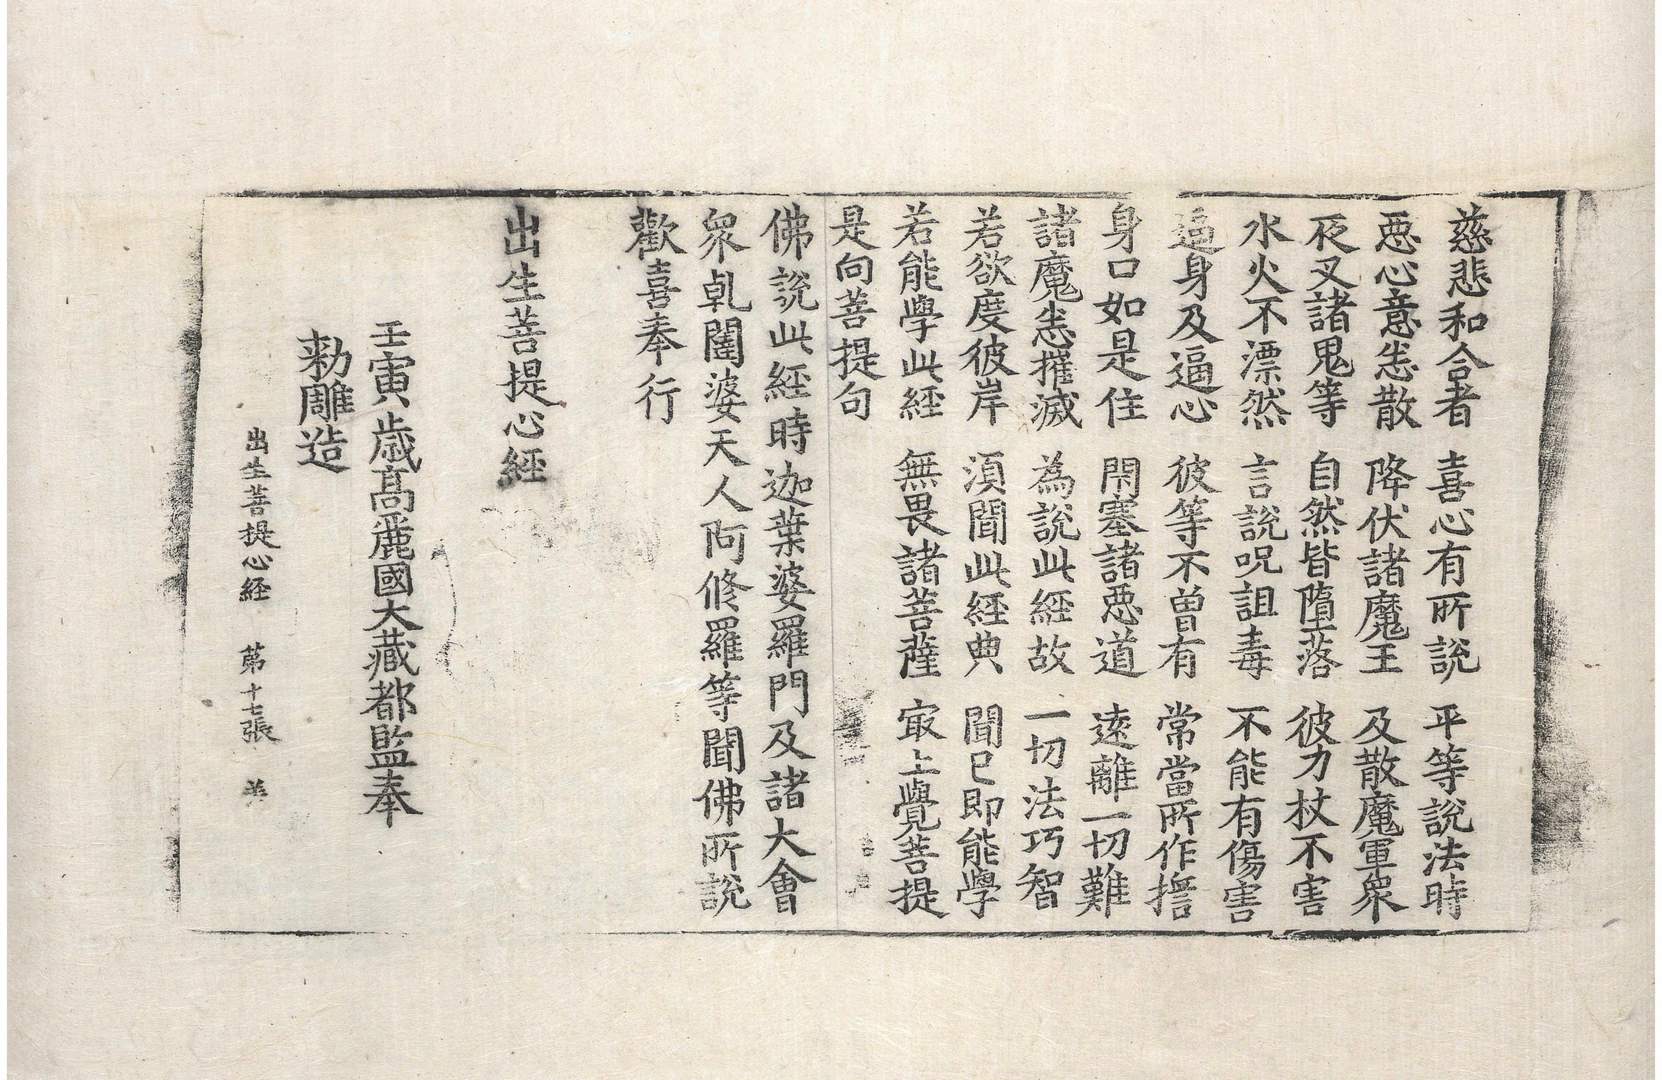 慈悲和合者 喜心有所說 平等說法時
惡心意恙散 降伏諸魔王 及散魔軍衆
夜叉諸鬼等 自然皆墮落 彼刀杖不害
水火不漂然 言說呪詛毒 不能有傷害
逼身及逼心 彼等不曾有 常當所作擔
身口如是住 閇塞諸惡道 遠離一切難
諸魔恙摧滅 為說此經故 一切法巧智
若欲度彼岸 湏聞此經典 聞已即能學
若能學此經 無畏諸菩薩 㝡上覺菩提
是向菩提句
佛說此經時迦葉婆羅門及諸大會
衆乹闥婆天人阿修羅等聞佛所說
歡喜奉行
出生菩提心經
壬寅歳高麗國大藏都監奉
勑雕造
出生菩提心経 第十七張